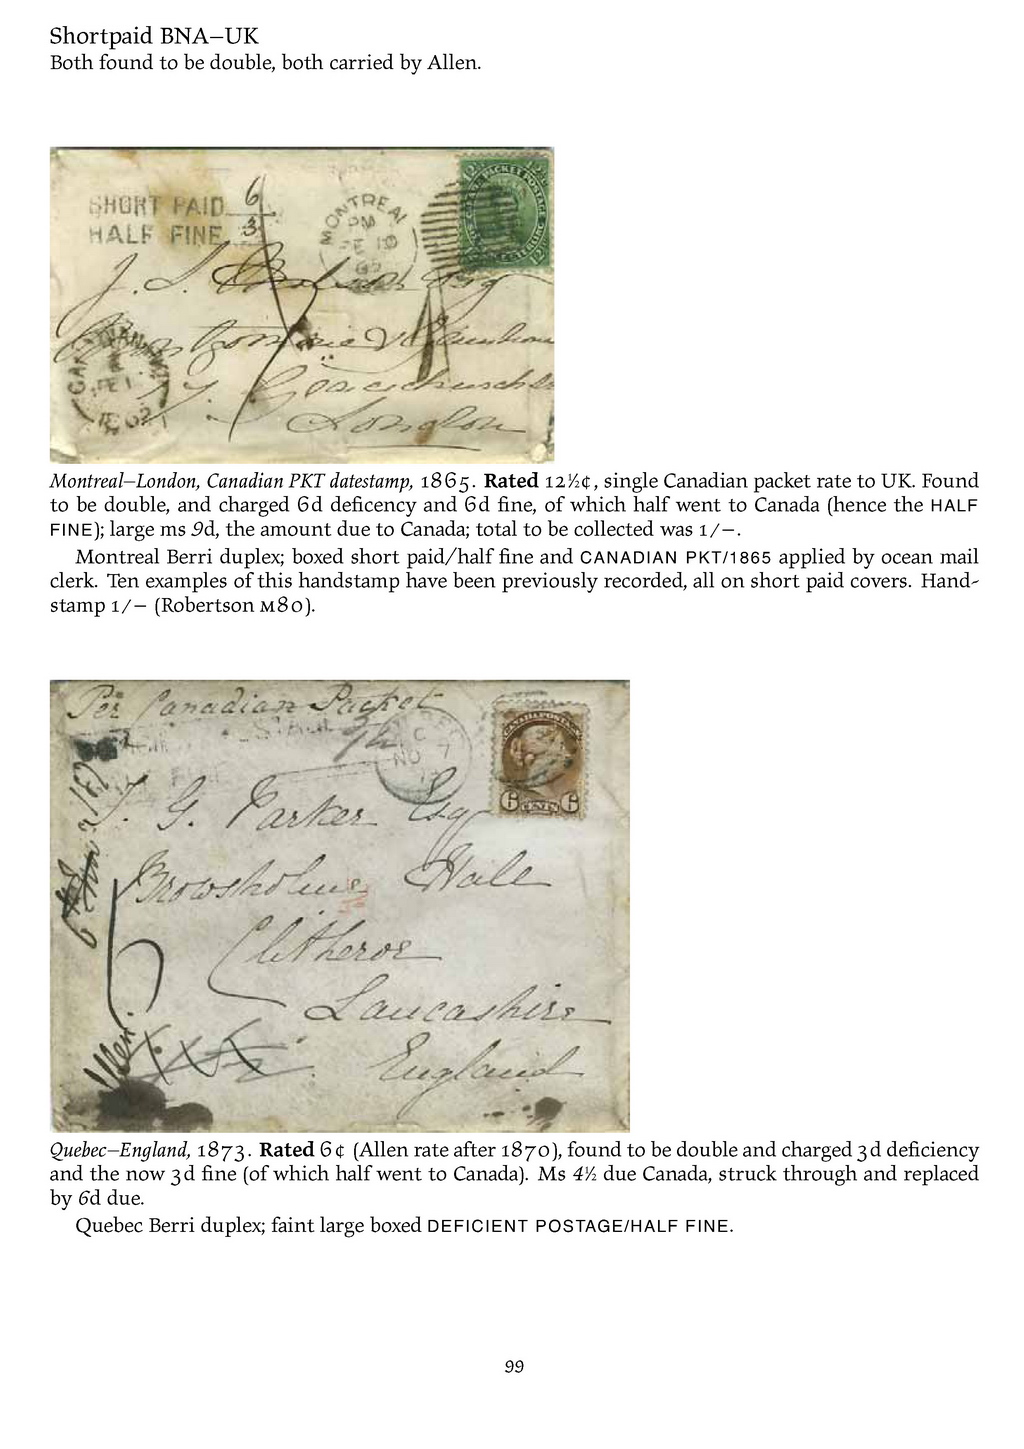 Shortpaid BNA–UK
Both found to be double, both carried by Allen.
SHORT PAID 6
HALF FINE 3
MONTREAL
PM
FE 19
65
CANADIAN
London
Montreal–London, Canadian PKT datestamp, 1865. Rated 12½¢, single Canadian packet rate to UK. Found
to be double, and charged 6d deficency and 6d fine, of which half went to Canada (hence the HALF
FINE); large ms 9d, the amount due to Canada; total to be collected was 1/–.
Montreal Berri duplex; boxed short paid/half fine and CANADIAN PKT/1865 applied by ocean mail
clerk. Ten examples of this handstamp have been previously recorded, all on short paid covers. Hand-
stamp 1/– (Robertson M80).
Per Canadian Packet
NO 7
CANADA POSTAGE
6 CENTS 6
T. G. Parker Esq
Browsholme Hall
Clitheroe
Lancashire
England
Allen
Quebec–England, 1873. Rated 6¢ (Allen rate after 1870), found to be double and charged 3d deficiency
and the now 3d fine (of which half went to Canada). Ms 4½ due Canada, struck through and replaced
by 6d due.
Quebec Berri duplex; faint large boxed DEFICIENT POSTAGE/HALF FINE.
99